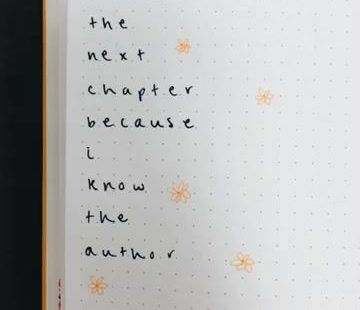 the
next
chapter
because
i
know
the
author